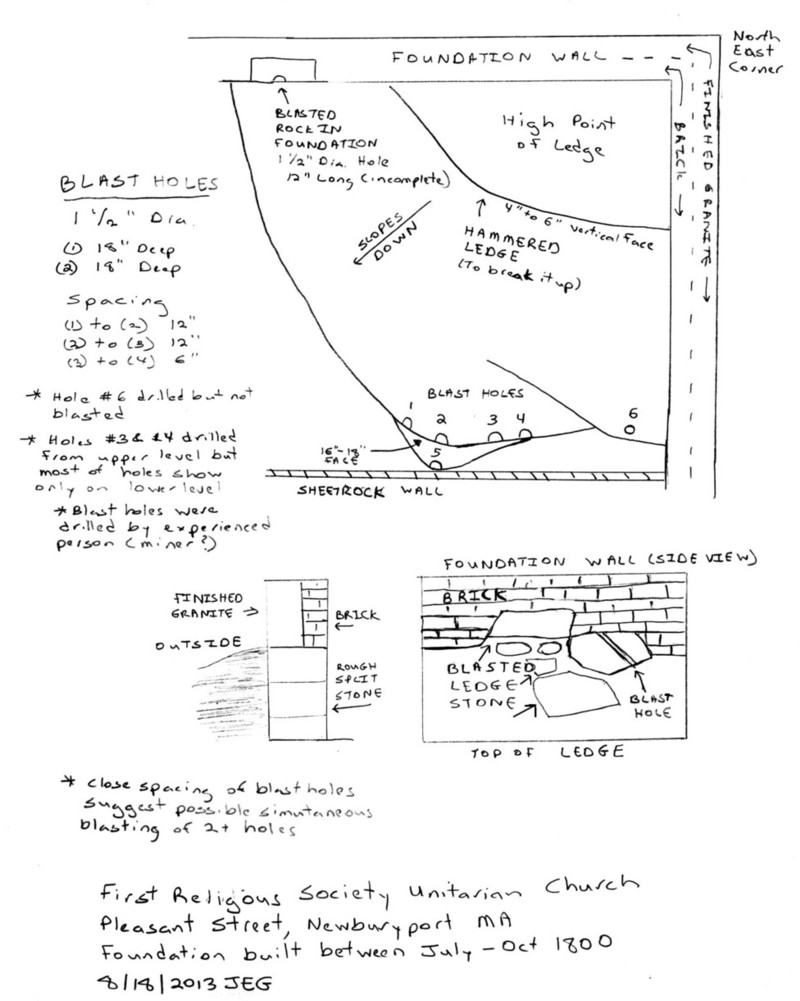 North
East
Corner
FOUNDATION WALL
FINISHED GRANITE
BRICK
BLASTED
ROCK IN
FOUNDATION
1 1/2" Dia. Hole
12" Long (incomplete)
High Point
of Ledge
4" to 6" vertical face
HAMMERED
LEDGE
(To break it up)
SLOPES
DOWN
BLAST HOLES
1 1/2" Dia.
(1) 18" Deep
(2) 18" Deep
Spacing
(1) to (2) 12"
(2) to (3) 12"
(3) to (4) 6"
* Hole #6 drilled but not
blasted
* Holes #3 & #4 drilled
from upper level but
most of holes show
only on lower level
* Blast holes were
drilled by experienced
person (miner?)
BLAST HOLES
1
2
3
4
5
6
16"-18"
FACE
SHEETROCK WALL
FINISHED
GRANITE
BRICK
OUTSIDE
ROUGH
SPLIT
STONE
FOUNDATION WALL (SIDE VIEW)
BRICK
BLASTED
LEDGE
STONE
BLAST
HOLE
TOP OF LEDGE
* Close spacing of blast holes
suggest possible simutaneous
blasting of 2+ holes
First Religious Society Unitarian Church
Pleasant Street, Newburyport MA
Foundation built between July - Oct 1800
8/18/2013 JEG